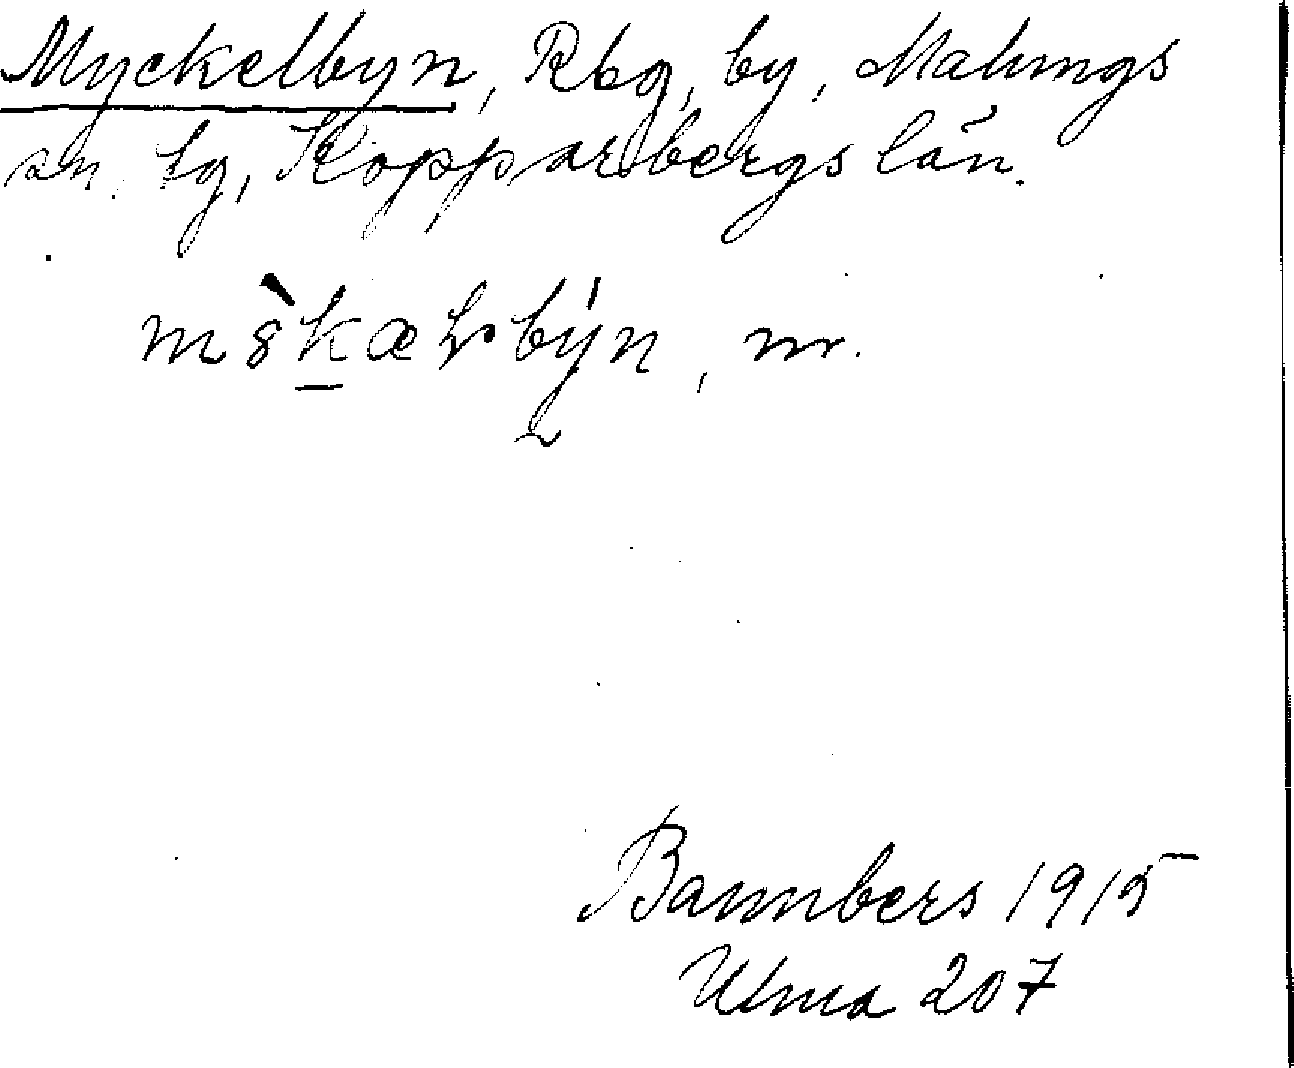 Myckelbyn, Rbg, by, Malungs
sn. tg, Kopparbergs län.
m. 
Bannbers 1915
Ulma 207